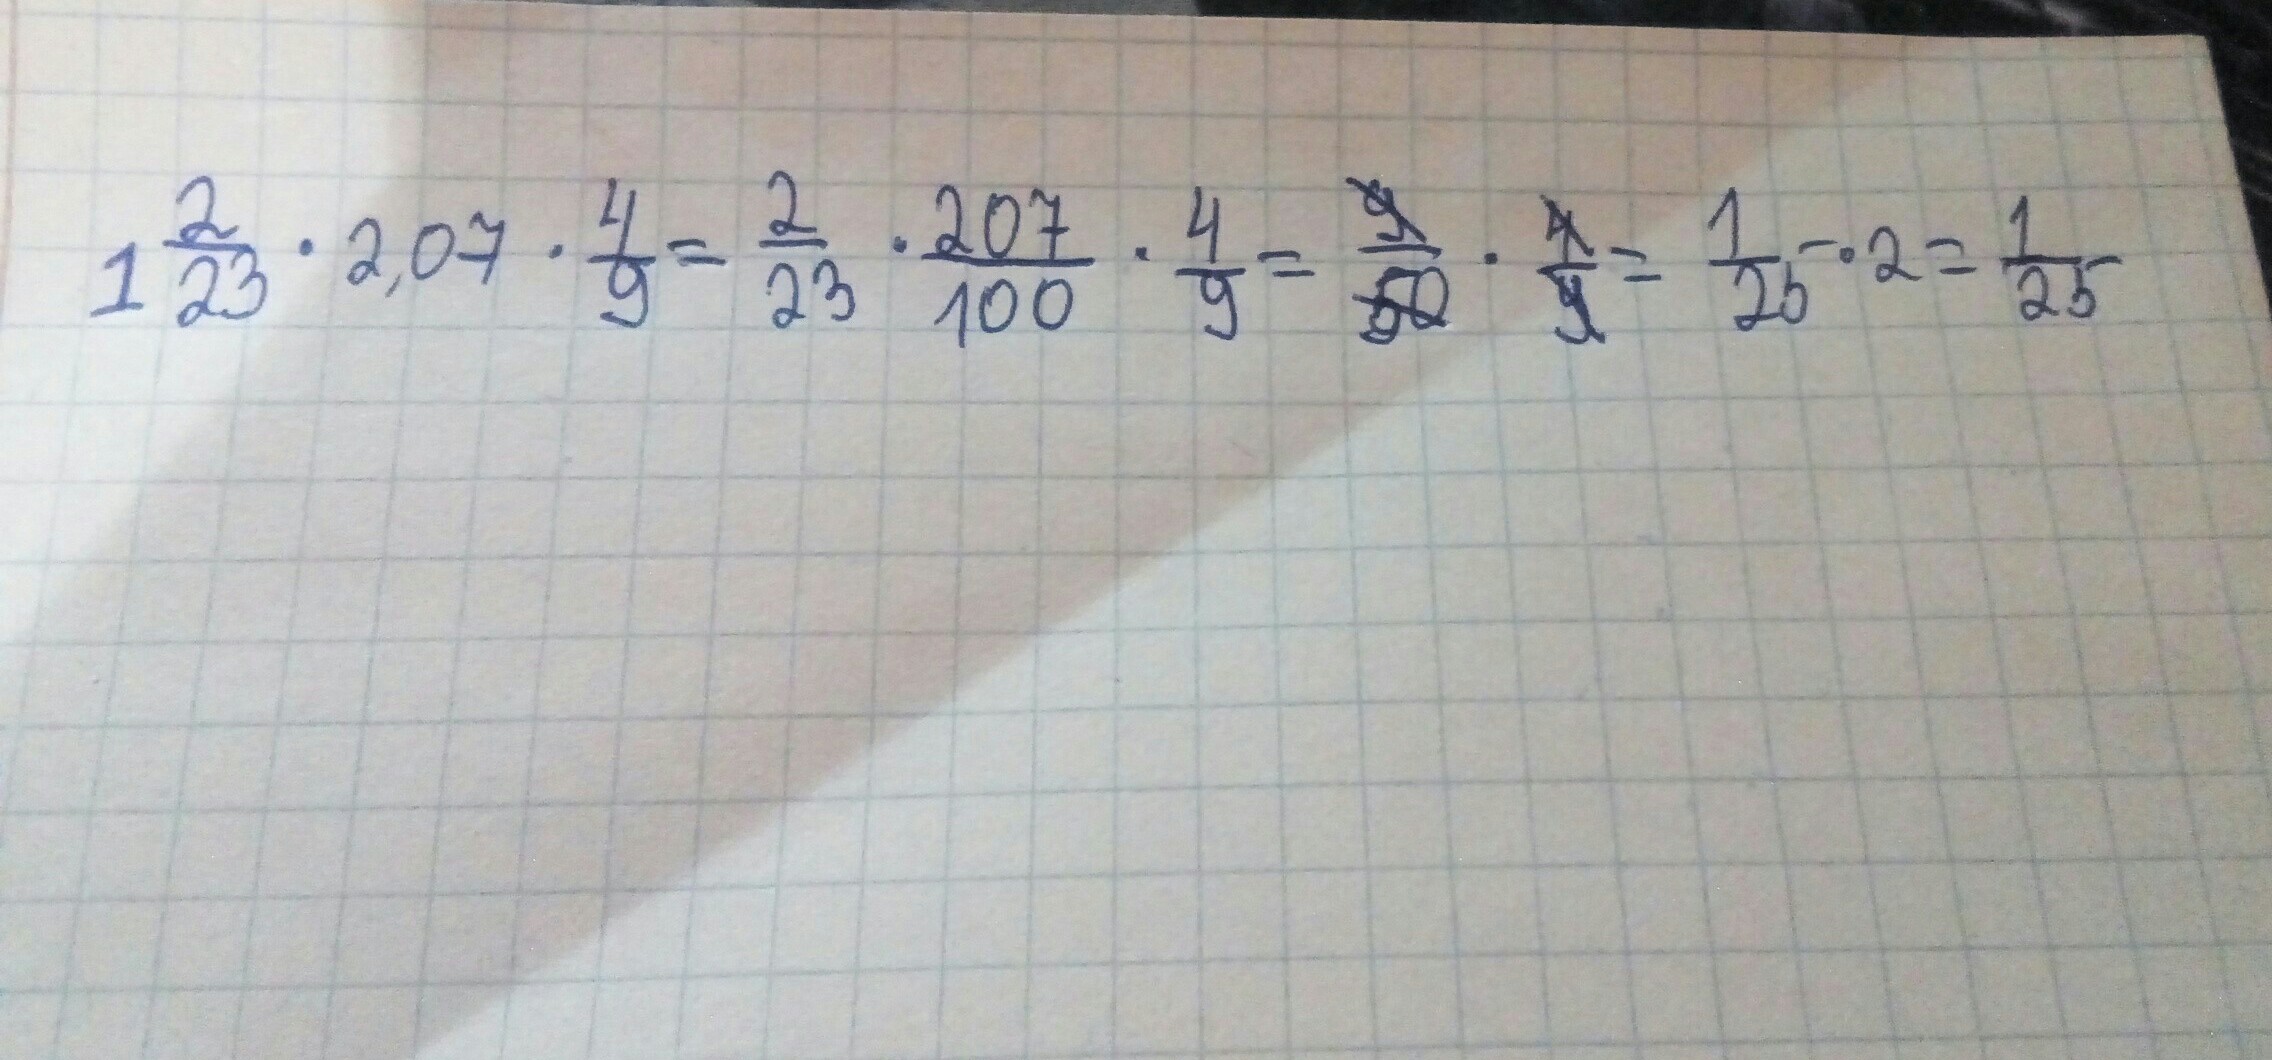 1 2/23 · 2,07 · 4/9 = 2/23 · 207/100 · 4/9 = 9/50 · 4/9 = 1/25 · 2 = 1/25